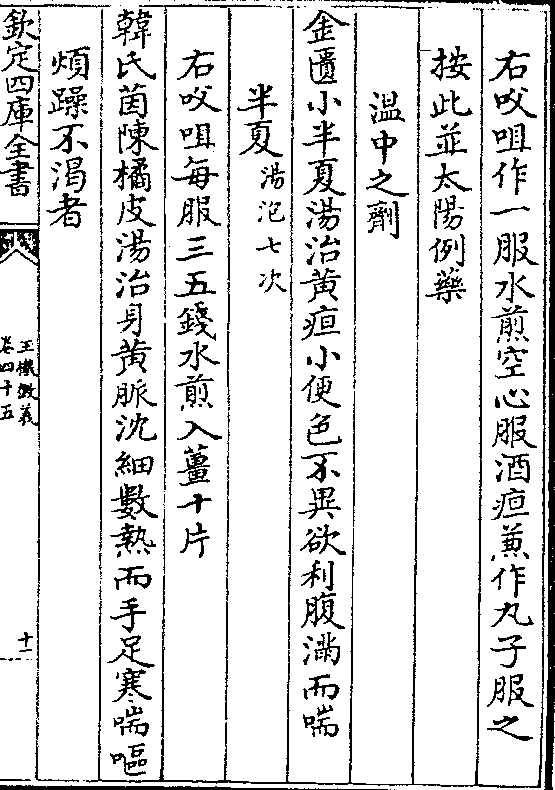 右㕮咀作一服水煎空心服酒疸兼作丸子服之
按此並太陽例藥
溫中之劑
金匱小半夏湯治黃疸小便色不異欲利腹滿而喘
半夏湯泡七次
右㕮咀每服三五錢水煎入薑十片
韓氏茵陳橘皮湯治身黃脈沈細數熱而手足寒喘嘔
煩躁不渴者
欽定四庫全書
玉機微義
卷四十五
十一